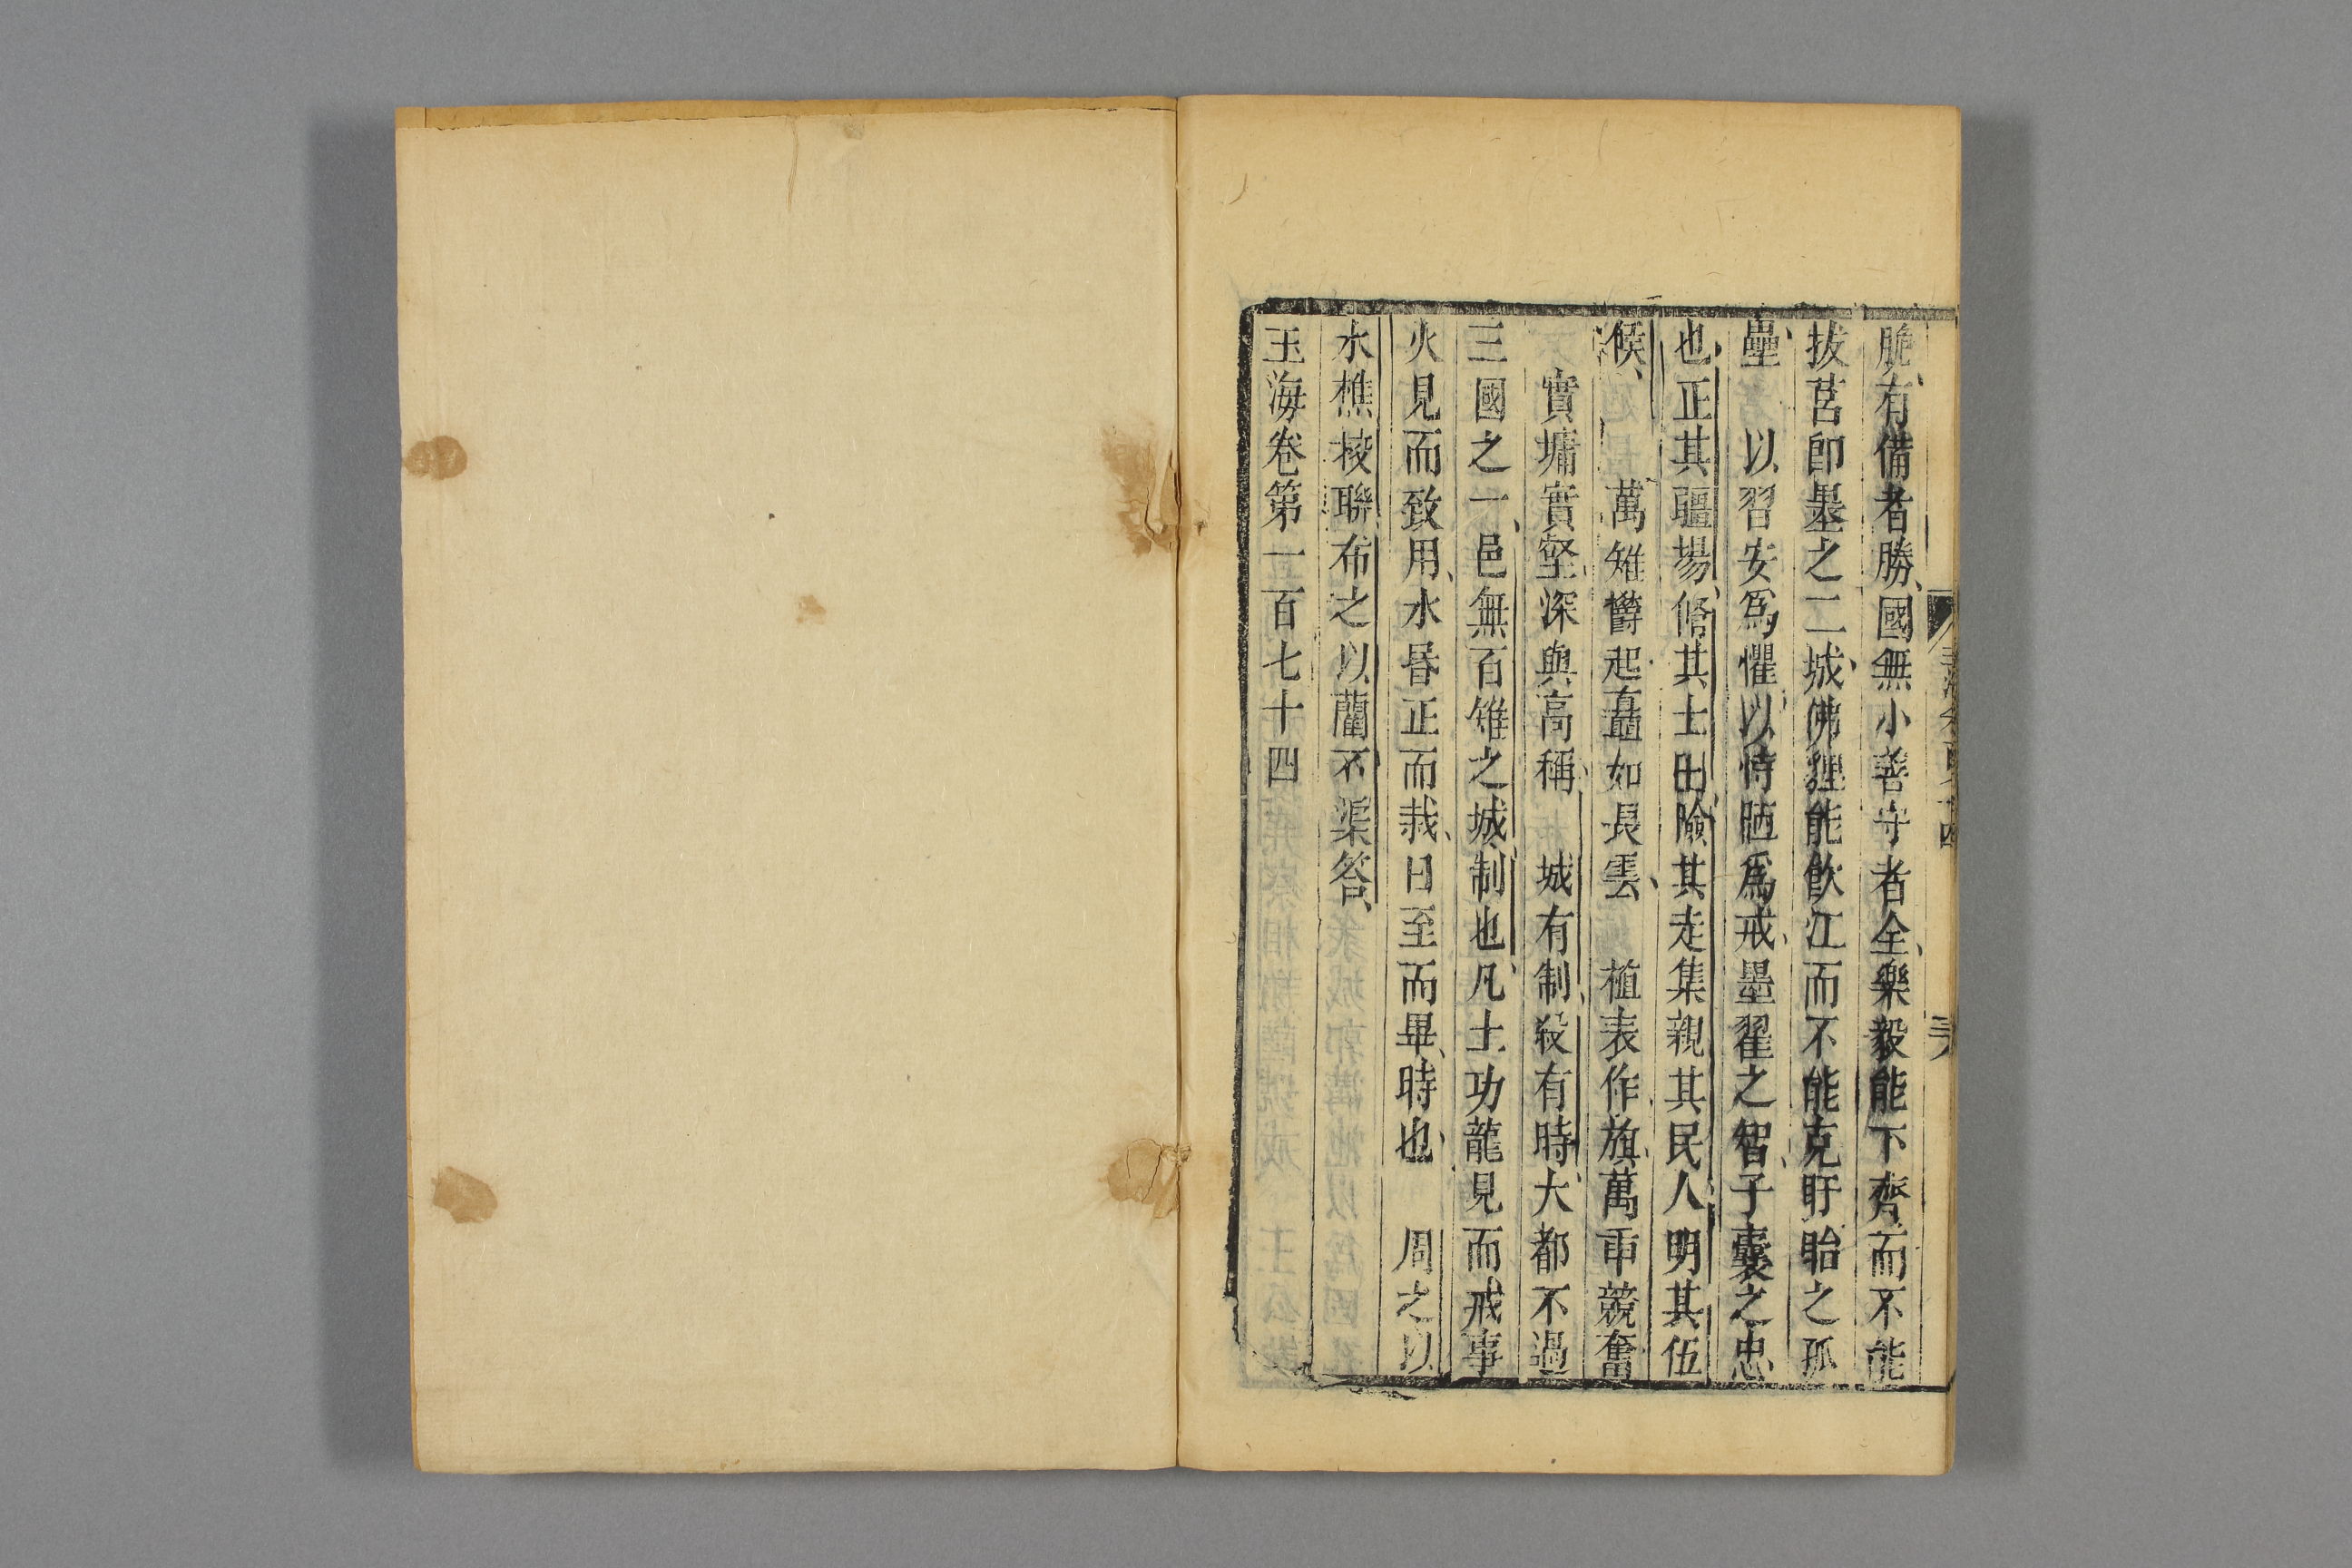 脆、有備者勝、國無小善守者全、樂毅能下齊而不能
拔莒卽墨之二城、佛狸能飮江而不能克盱眙之孤
壘　以習安爲懼、以恃陋爲戒、墨翟之智、子囊之忠
也、正其疆場、脩其土田、險其走集、親其民人、明其伍
候、　萬雉欝起、直矗如長雲、　植表作旗、萬甬競奮
實墉實壑、深與高稱　城有制、役有時、大都不過
三國之一、邑無百雉之城、制也、凡土功龍見而戒事
火見而致用、水昏正而栽、日至而畢、時也、　周之以
水樵校聯布之以藺不渠答、
玉海卷第一百七十四
玉海卷